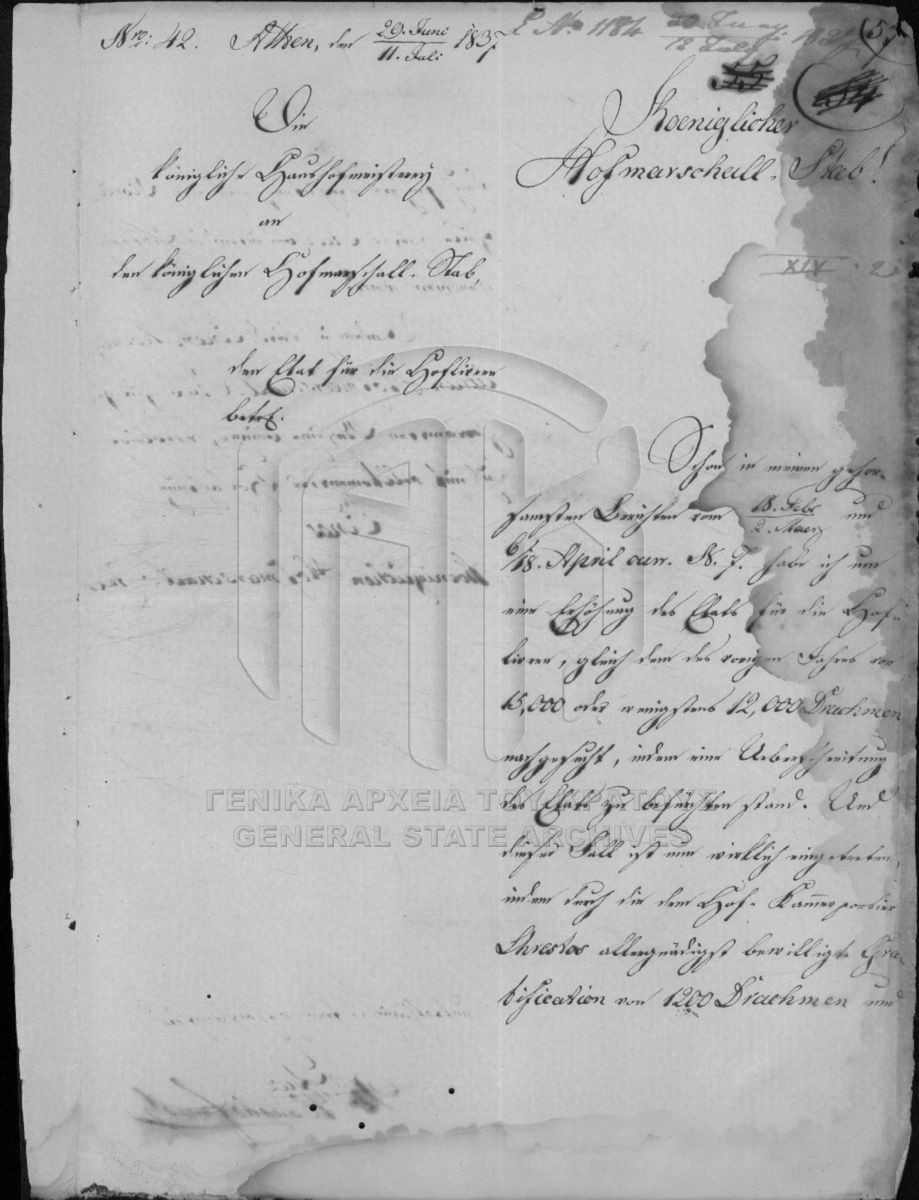 Nro: 42. Athen, den 29. Juni / 11. Juli 1837
E. No 1184
Die
königliche Haushofmeisterey
an
den königlichen Hofmarschall-Stab,
den Etat für die Hoflivree
betrf.
Koeniglicher
Hofmarschall-Stab!
XIX
Schon in meinen gehor-
samsten Berichten vom 18. Febr / 2. Maerz und
6/18. April curr. N. 7. habe ich um
eine Erhöhung des Etats für die Hof-
livree, gleich dem des vorigen Jahres von
15,000 oder wenigstens 12,000 Drachmen
nachgesucht, indem eine Ueberschreitung
des Etats zu befürchten stand. Und
dieser Fall ist nun wirklich eingetreten,
indem durch die dem Hof-Kammerportier
Chrestos allergnädigst bewilligte Gra-
tification von 1200 Drachmen und
ΓΕΝΙΚΑ ΑΡΧΕΙΑ ΤΟΥ ΚΡΑΤΟΥΣ
GENERAL STATE ARCHIVES